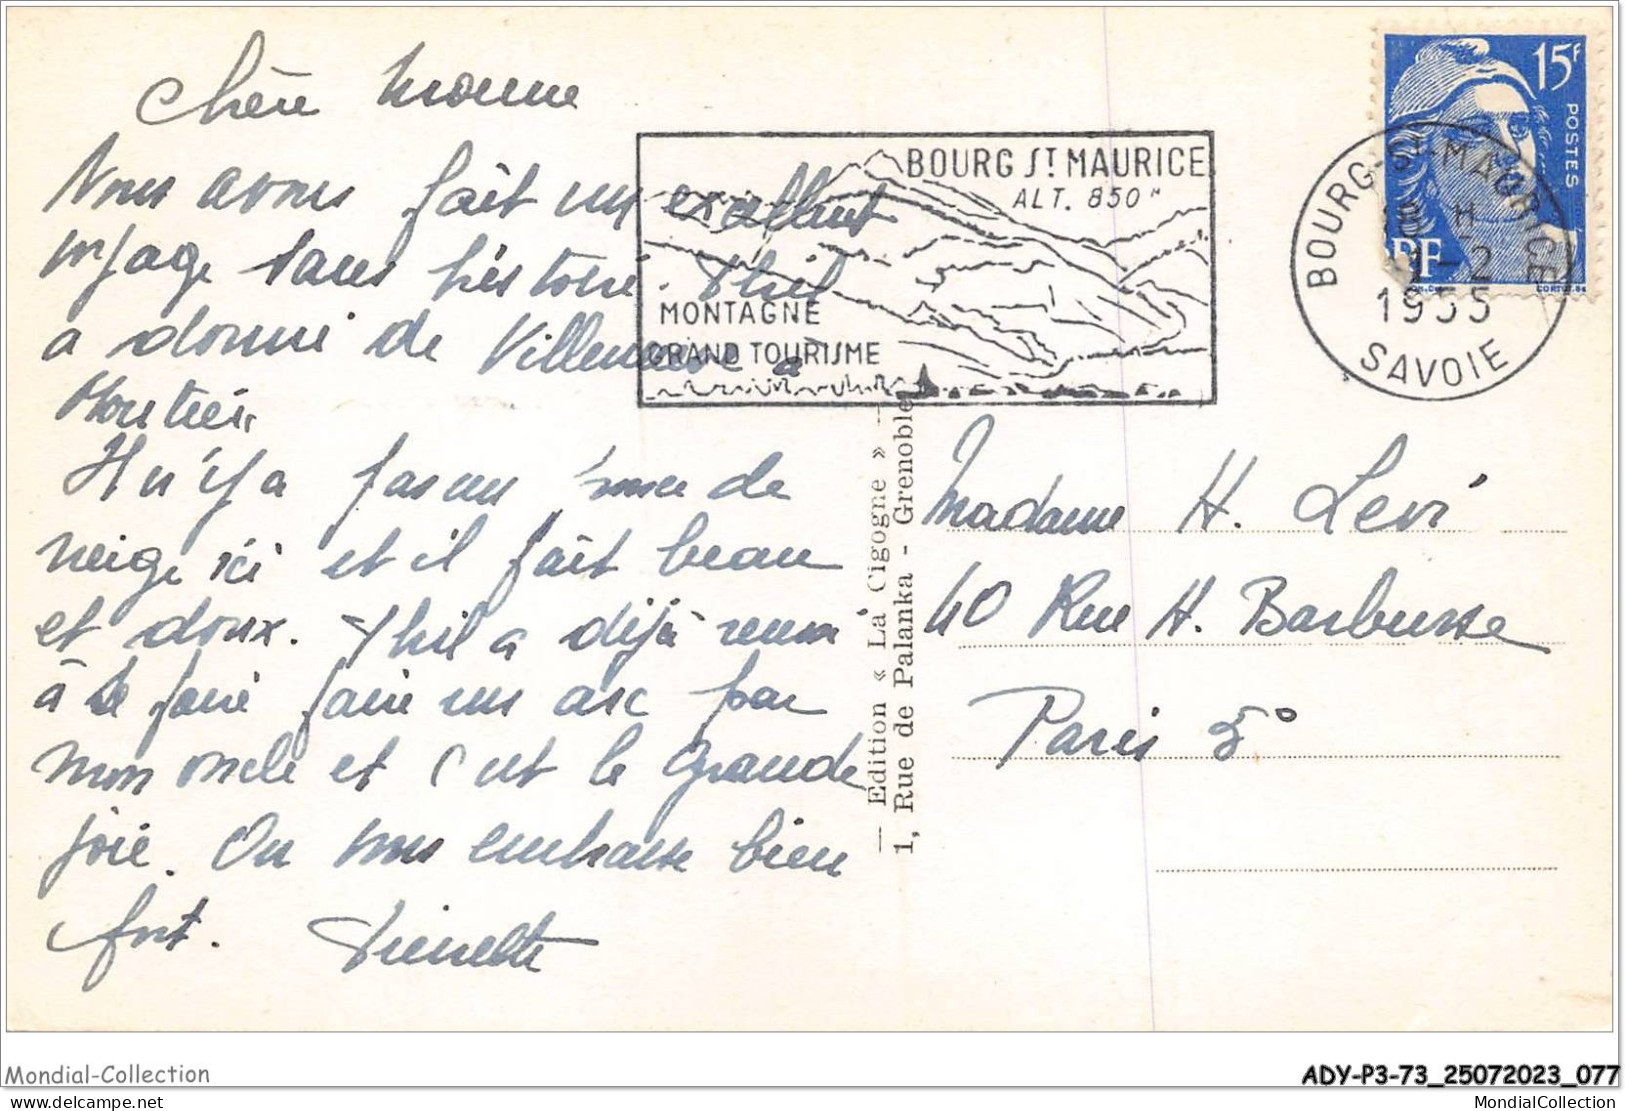 Chère
Nous avons fait un excellent
voyage sans histoire. Phil
a dormi de Villeneuve à
Moutiers.
Il n'y a pas un de
neige ici et il fait beau
et doux. Phil a déjà réussi
à se faire faire un arc par
mon oncle et c'est la grande
joie. On vous embrasse bien
fort. Pierrette
BOURG ST MAURICE
ALT. 850 M
MONTAGNE
GRAND TOURISME
15F
POSTES
RF
BOURG-ST-MAURICE
1955
SAVOIE
— Edition « La Cigogne » —
1, Rue de Palanka - Grenoble
Madame H. Levi
40 Rue H. Barbusse
Paris 5°
Mondial-Collection
ADY-P3-73_25072023_077
delcampe.net
MondialCollection